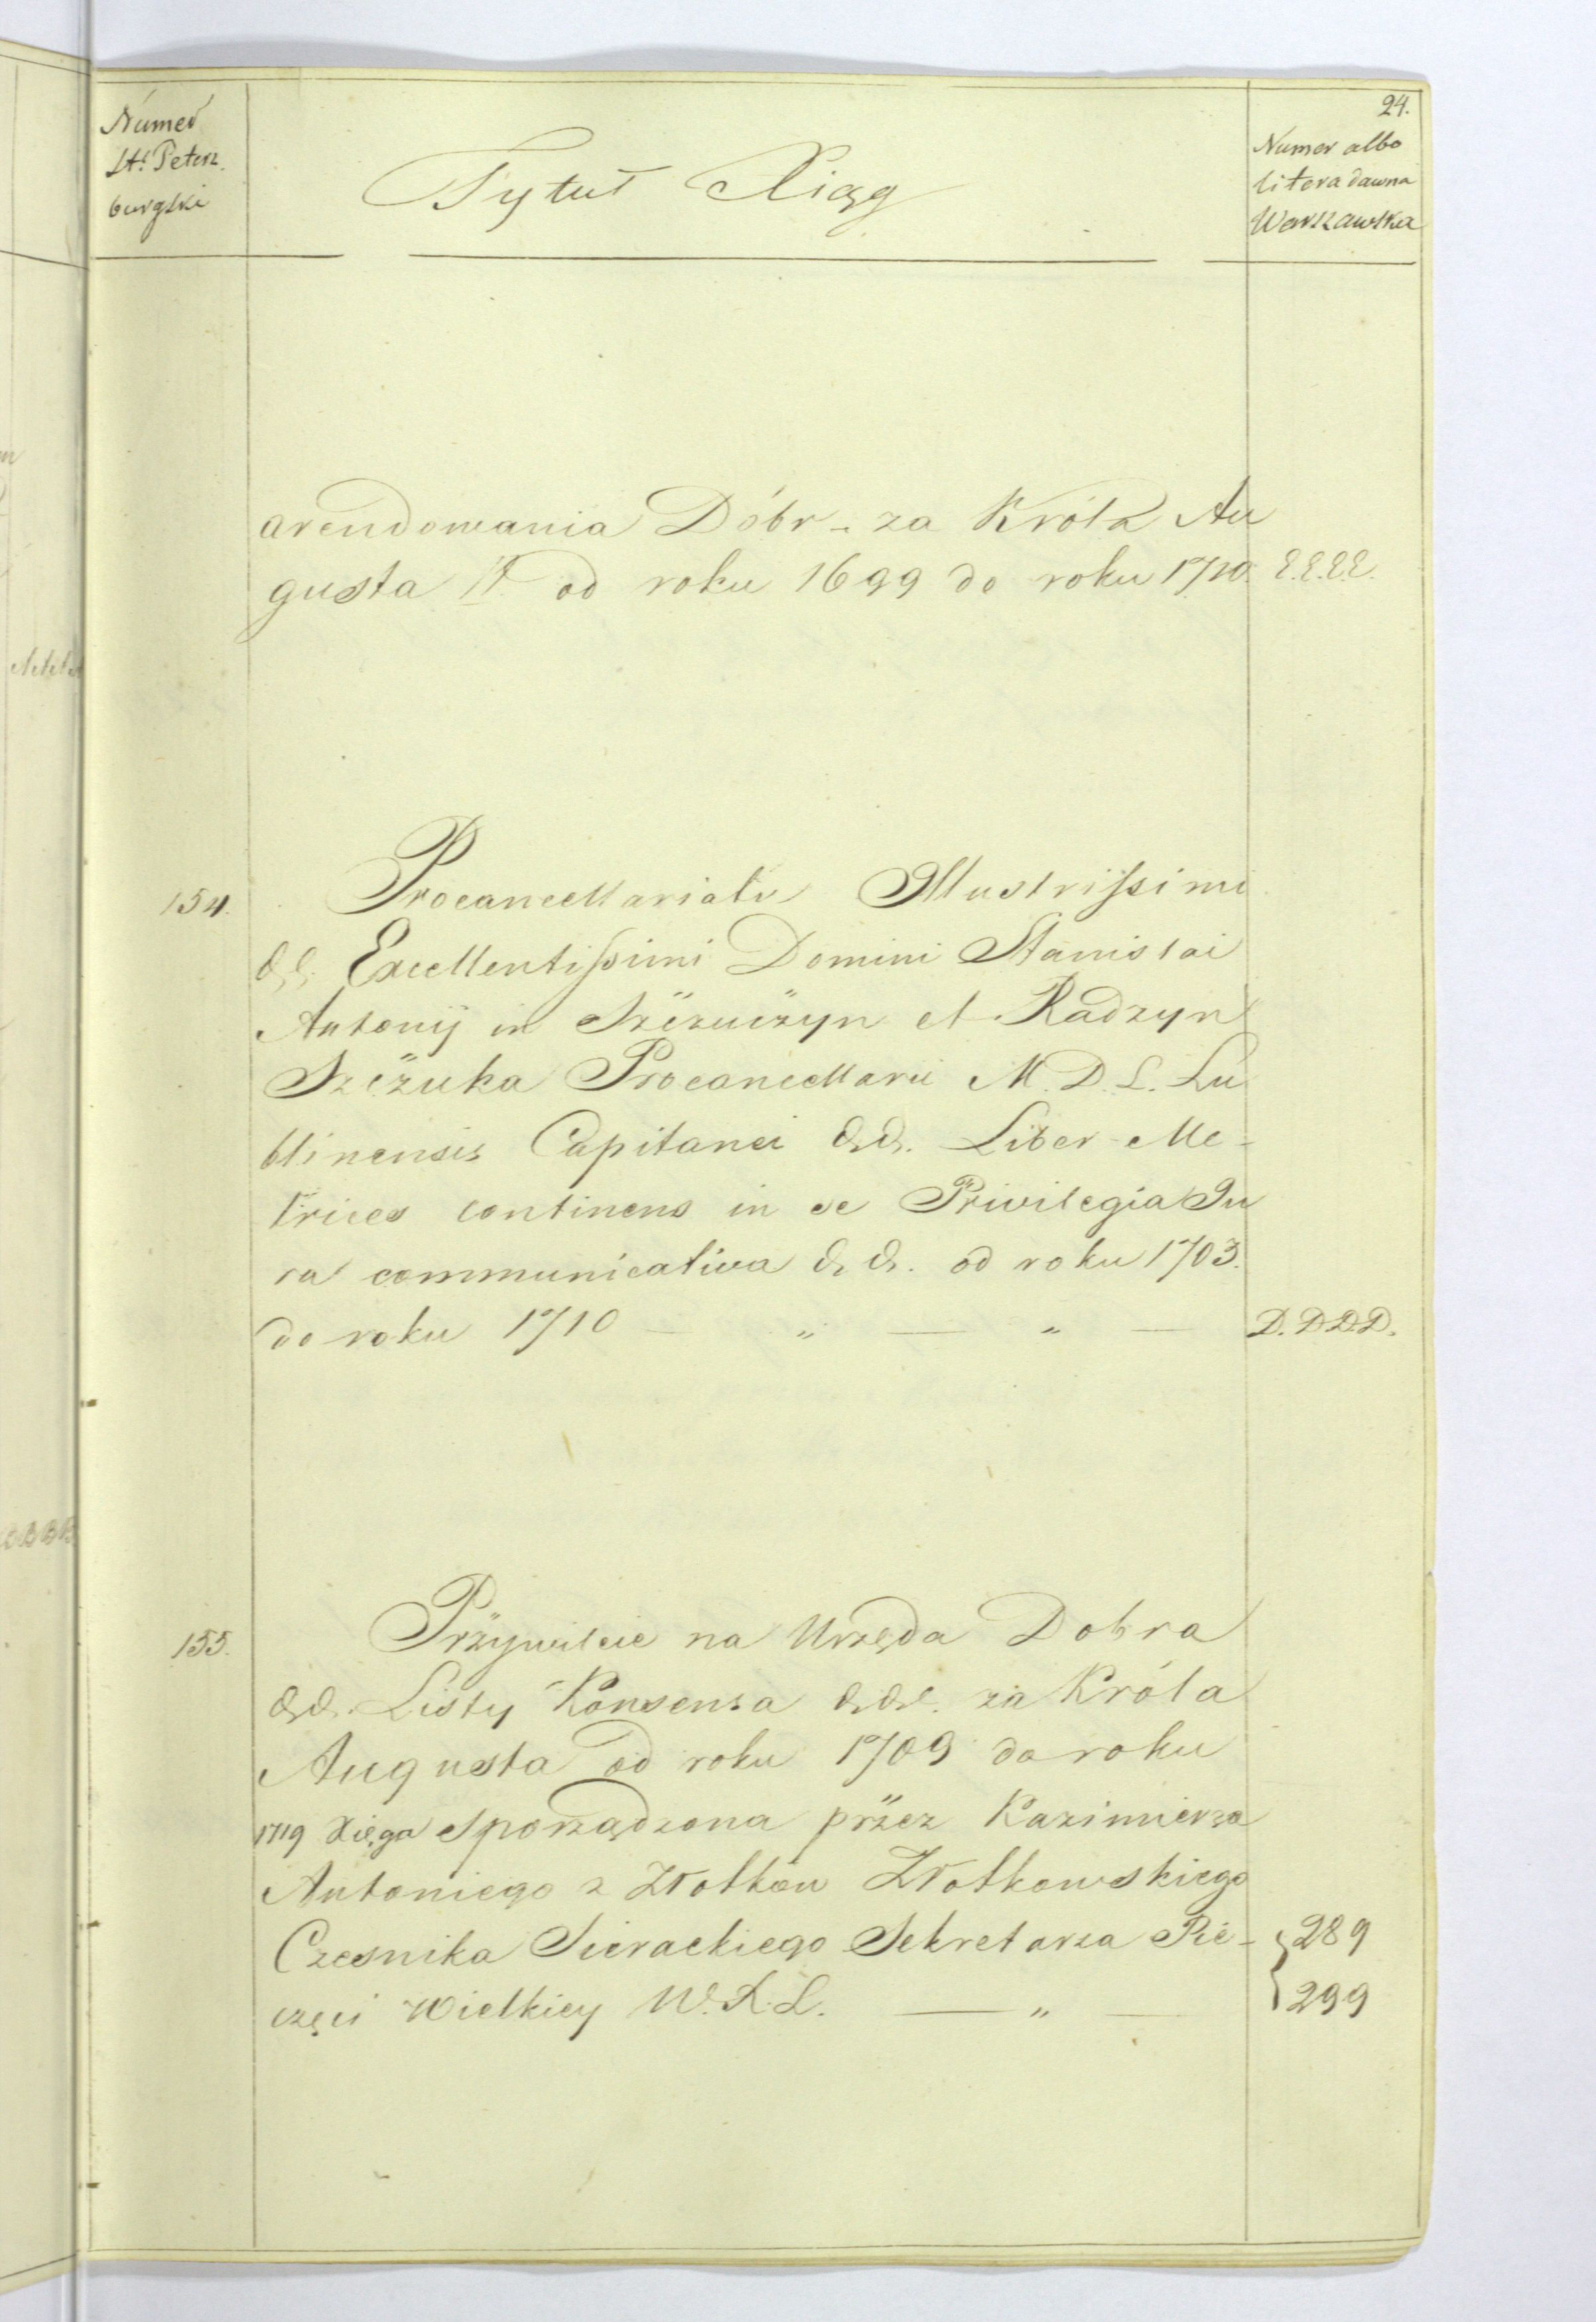 24.
Numer
St. Peters.
burgski
Tytuł Xiąg
Numer albo
litera dawna
Warszawska
arendowania Dóbr - za Króla Au
gusta II od roku 1699 do roku 1710. E.E.E.E.
154. Procancellariatu Illustrissimi
&&. Excellentissimi Domini Stanislai
Antonij in Szczuczyn et Radzyn
Szczuka Procancellarii M. D. L. Lu
blinensis Capitanei &&. Liber Me-
trices continens in se Privilegia Ju
ra communicativa &&. od roku 1703.
do roku 1710 — " — " — D.D.D.D.
155. Przywileie na Urzęda Dobra
&&. Listy Konsensa &&. za Króla
Augusta od roku 1709 do roku
1719 Xięga sporządzona przez Kazimierza
Antoniego z Złotkow Złotkowskiego
Czesnika Sierackiego Sekretarza Pie- 289
częci Wielkiey W. X. L. — " — 299